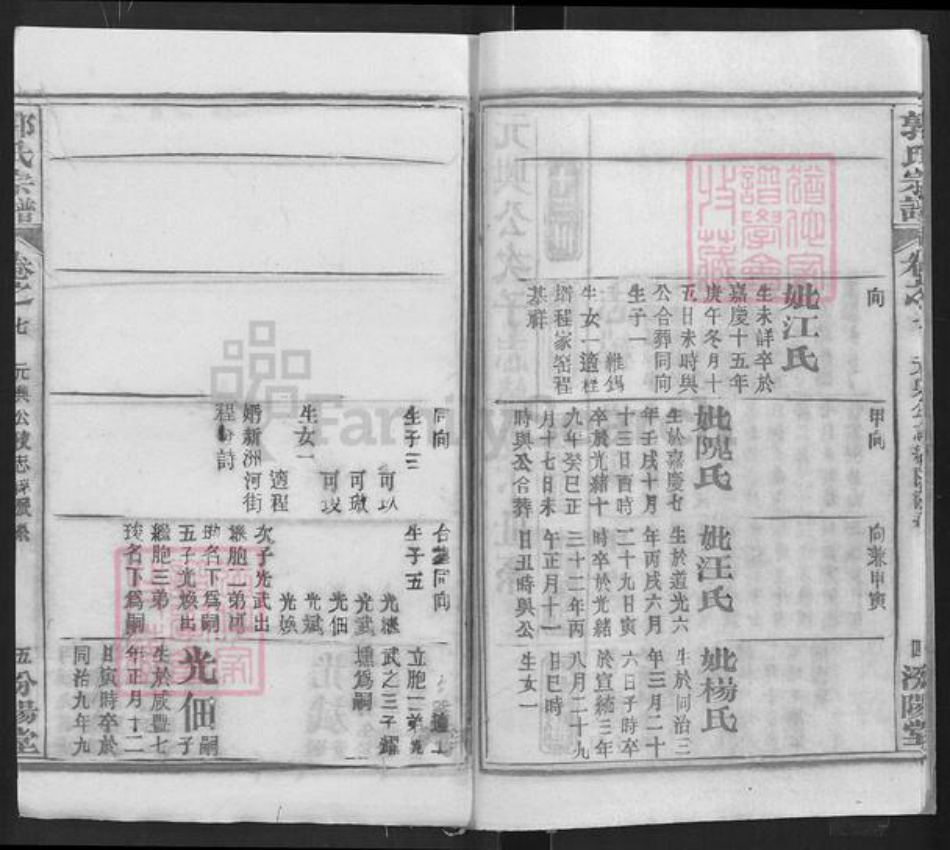 郭氏宗譜
向
妣江氏
生未詳卒於
嘉慶十五年
庚午冬月十
五日未時與
公合葬同向
生子一
維錫
生女一適程
壻程家
甲向
妣隗氏
生於嘉慶七
年壬戌十月
十三日酉時
卒於光緒十
九年癸巳正
月十七日未
時與公合葬
向兼甲寅
妣汪氏
生於道光六
年丙戌六月
二十九日寅
時卒於光緒
三十二年丙
午正月十一
日丑時與公
妣楊氏
生於同治三
年三月二十
六日子時卒
於宣統三年
八月二十九
日巳時
生女一
四
汾陽堂
同向
生子三
可
可
可
生女一
適程
婿新洲河街
程 詩
合葬同向
生子五
光
光武
光佃
光斌
光煥
次子光武出
繼胞二弟可
名下爲嗣
五子光煥出
繼胞三弟
名下爲嗣
立胞二弟光
武之三子耀
爲嗣
光佃
嗣子
生於咸豐七
年正月十二
日寅時卒於
同治九年九
郭氏宗譜
卷之
七
五
汾陽堂